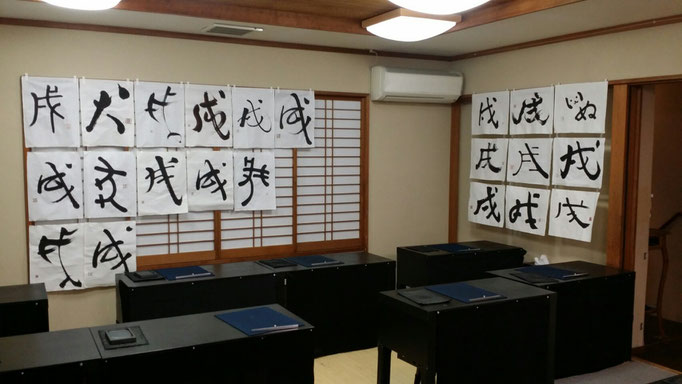 戌 犬 戌 戌 戌
戌 戌 戌
戌
戌 戌 いぬ
戌 戌 戌
戌 戌 戌